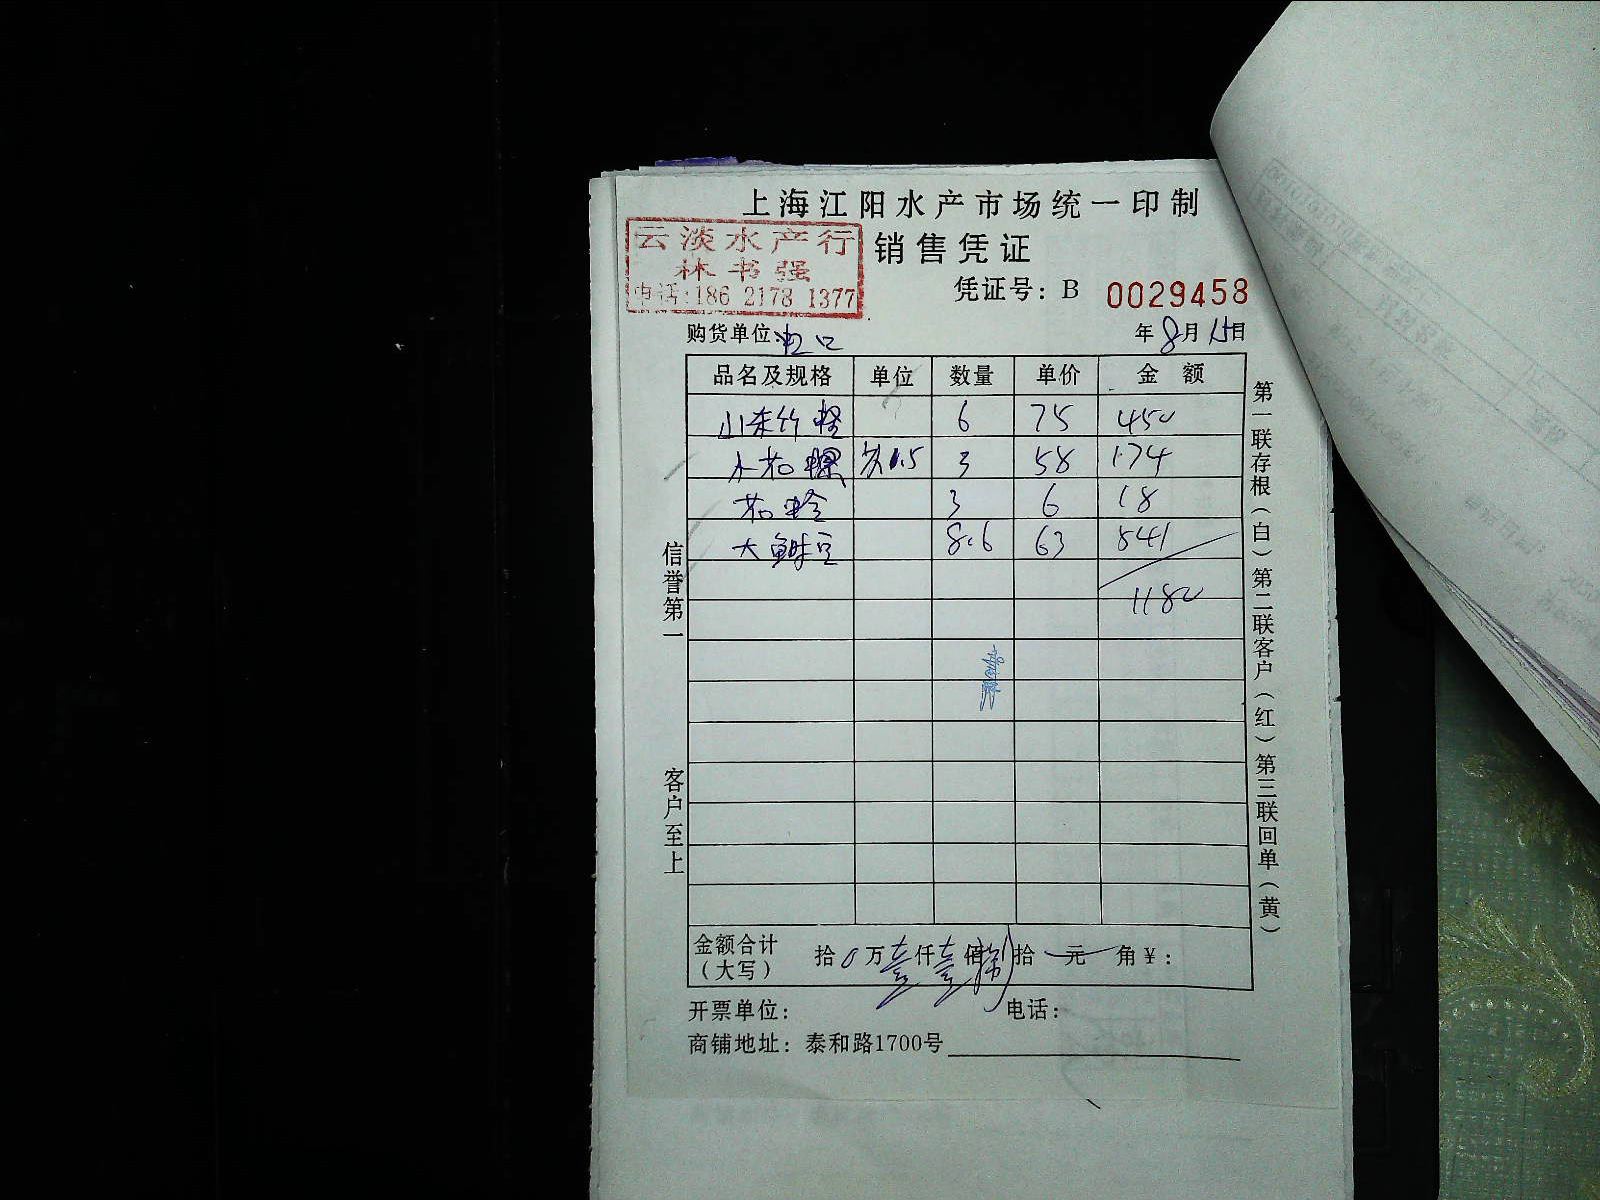 上海江阳水产市场统一印制
云淡水产行
林书强
电话:186 2178 1377
销售凭证
凭证号: B 0029458
购货单位 虹口 年 8 月 15 日
品名及规格 单位 数量 单价 金 额
山东竹蛏 6 75 450
水花螺 1.5 3 58 174
花蛤 3 6 18
大鲜豆 8.6 63 541
1180
信誉第一
客户至上
第一联存根(白)第二联客户(红)第三联回单(黄)
金额合计
(大写) 拾 0 万 壹 仟 壹 佰 捌 拾 元 角 ¥:
开票单位: 电话:
商铺地址: 泰和路1700号